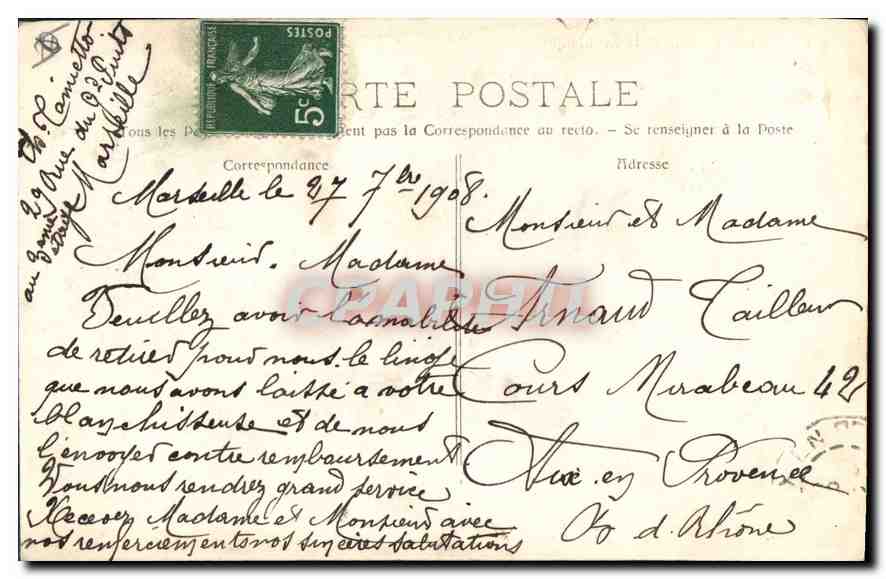 Ch. Camietto
29 Rue du Gd Puits
au 3ème étage Marseille
REPUBLIQUE FRANÇAISE
POSTES
5c
RTE POSTALE
Tous les Pa ent pas la Correspondance au recto. - Se renseigner à la Poste
Correspondance
Adresse
Marseille le 27 7bre 1908.
Monsieur. Madame
Veuillez avoir lamabilité
de retired pour nous le linge
que nous avons laissé a votre
blanchisseuse et de nous
l'envoyer contre remboursement
Vous nous rendrez grand service
Recevez Madame et Monsieur avec
nos remerciements nos sincères salutations
Monsieur et Madame
Arnaud Tailleur
Cours Mirabeau 42
Aix en Provence
d. Rhône
CPAPHIL